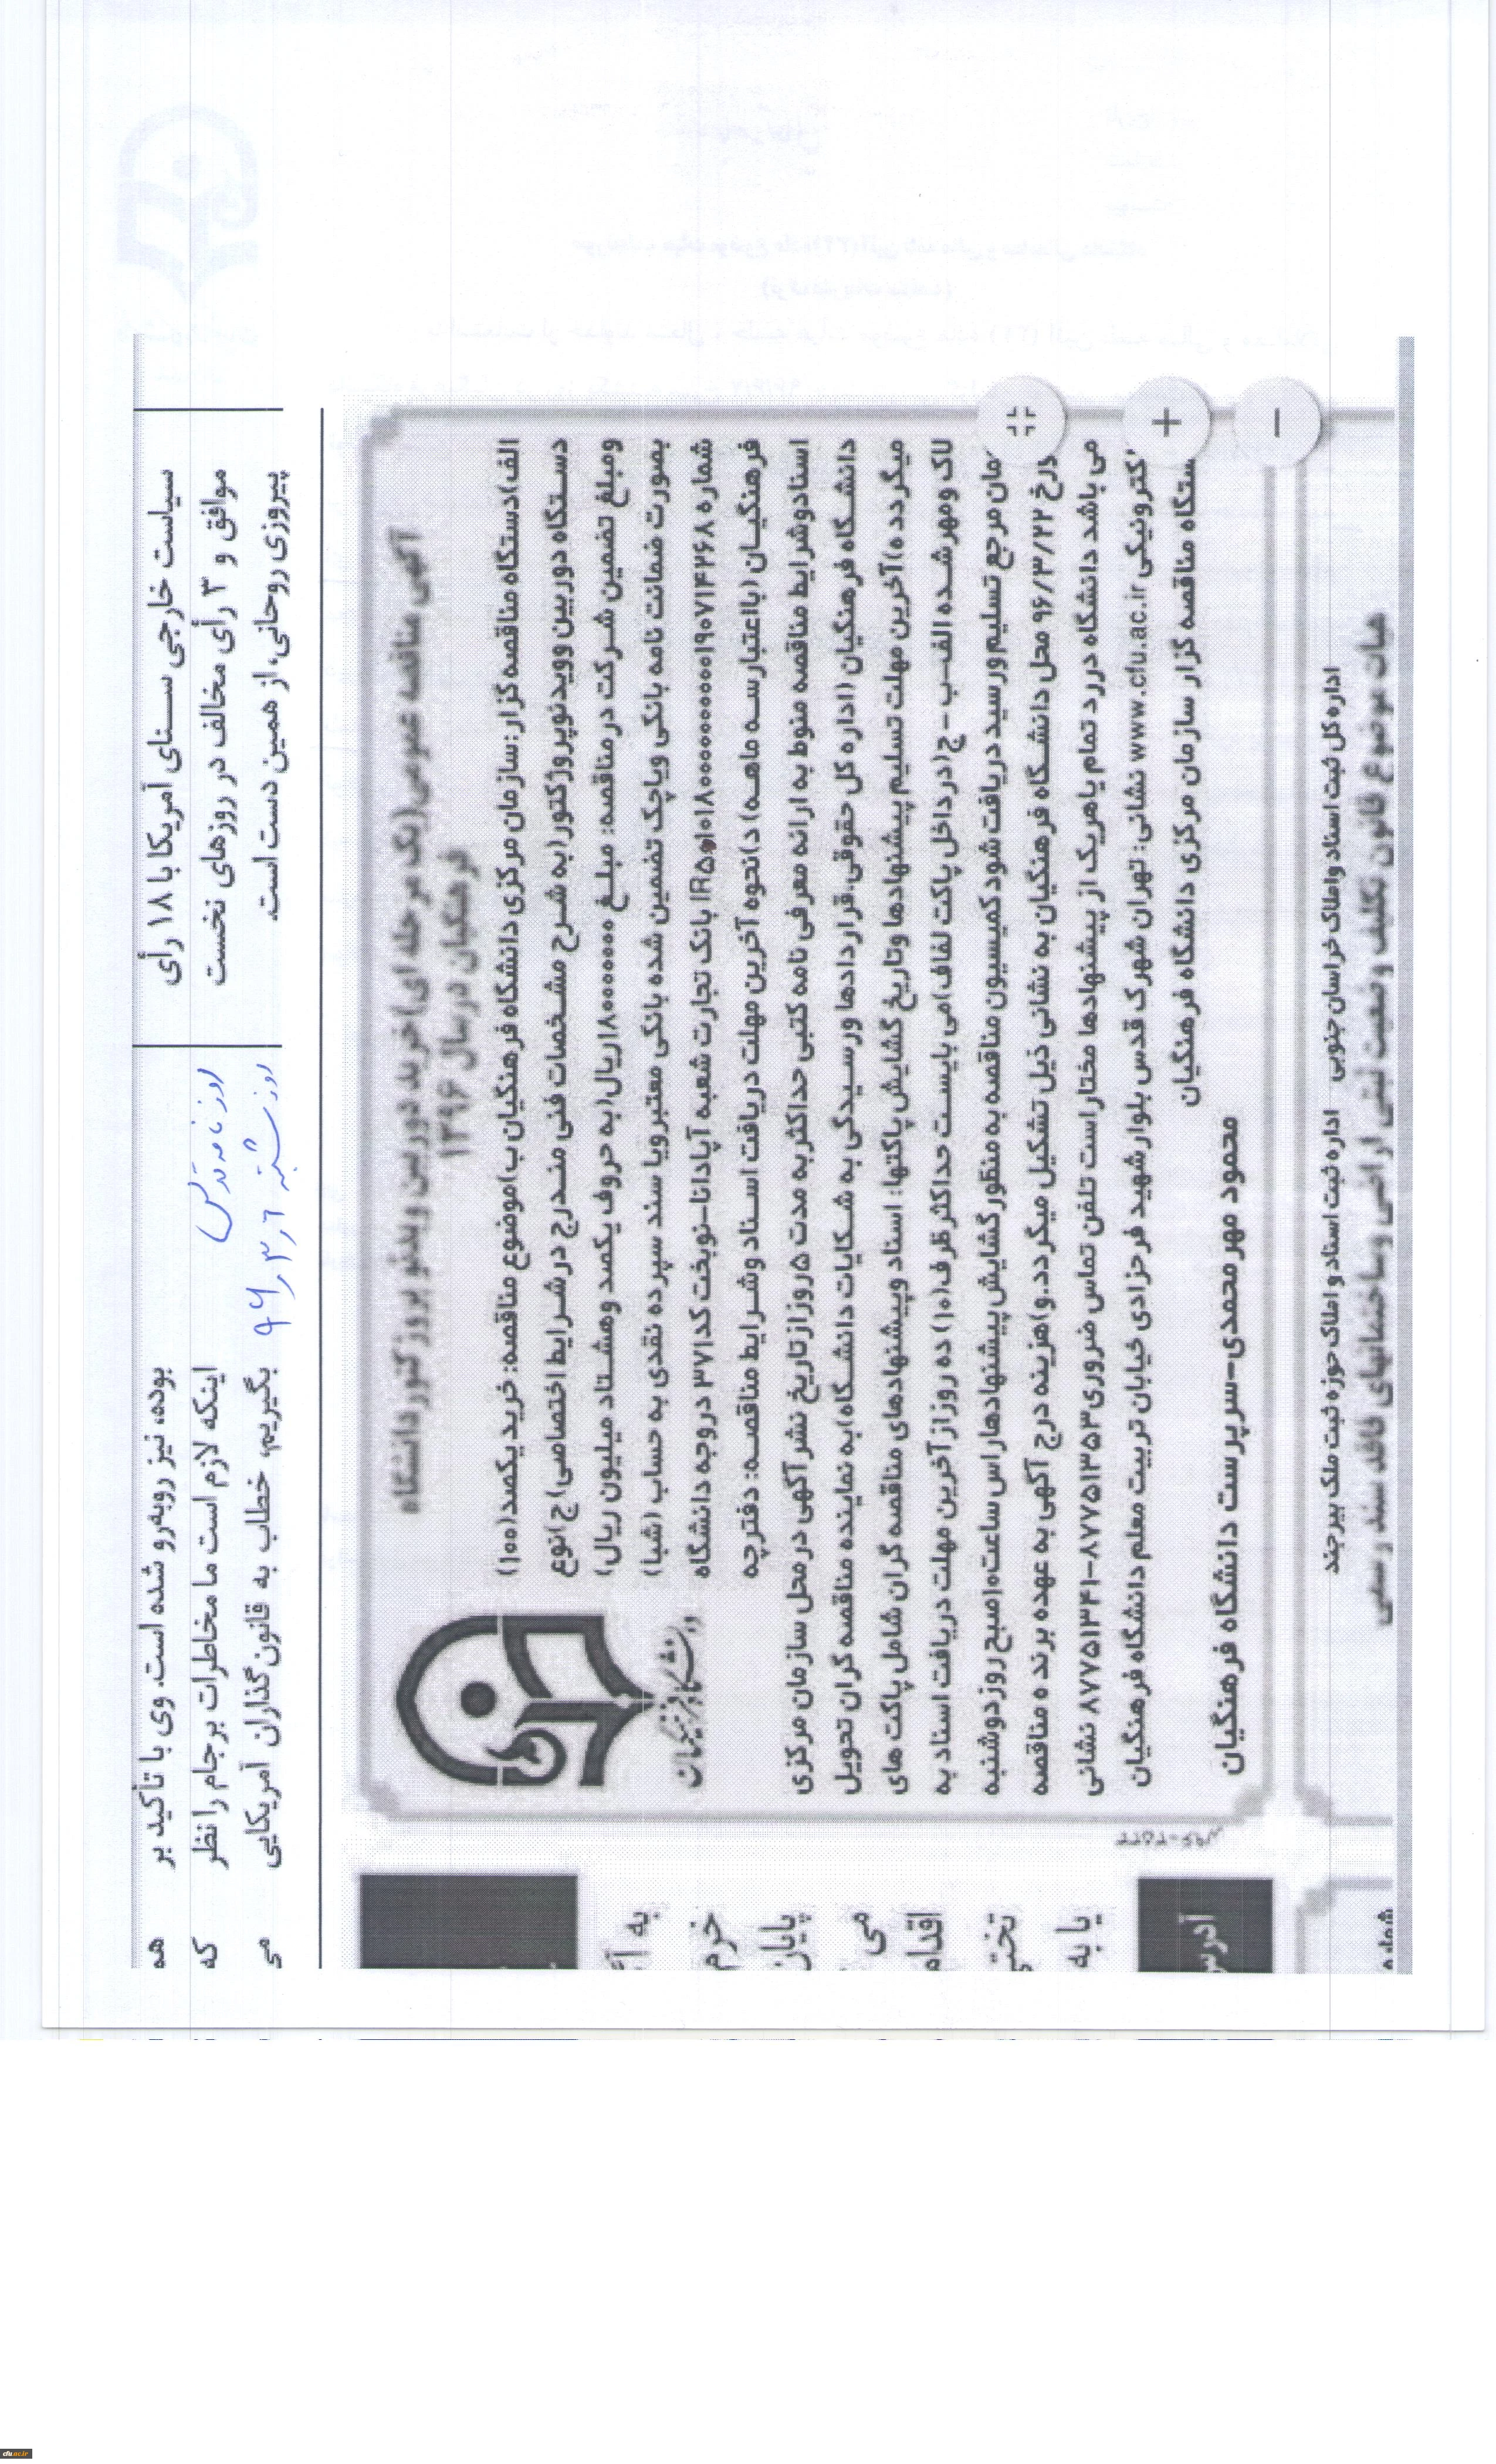 سیاست خارجی سنای آمریکا با ۱۸ رأی
موافق و ۳ رأی مخالف در روزهای نخست
پیروزی روحانی، از همین دست است.
روزنامه قدس
روز شنبه ۹۶/۳/۶
بوده، نیز روبه‌رو شده است. وی با تأکید بر
اینکه لازم است ما مخاطرات برجام را نظر
بگیریم، خطاب به قانون‌گذاران آمریکایی
هه
که
می
آگهی مناقصه عمومی(یک مرحله ای)خرید دوربین ویدئو پروژکتور دانشگاه
فرهنگیان در سال ۱۳۹۶
الف)دستگاه مناقصه گزار:سازمان مرکزی دانشگاه فرهنگیان ب)موضوع مناقصه: خرید یکصد(۱۰۰)
دستگاه دوربین وویدئوپروژکتور(به شرح مشخصات فنی مندرج در شرایط اختصاصی) ج)نوع
ومبلغ تضمین شرکت در مناقصه: مبلغ ۱۸۰۰۰۰۰۰۰ریال(به حروف یکصد وهشتاد میلیون ریال)
بصورت ضمانت نامه بانکی ویاچک تضمین شده بانکی معتبرویا سند سپرده نقدی به حساب (شبا)
شماره بانک تجارت شعبه آپادانا-نوبخت کد۳۷۱ دروجه دانشگاه
فرهنگیان (بااعتبارسه ماهه) د)نحوه آخرین مهلت دریافت اسناد وشرایط مناقصه: دفترچه
اسنادوشرایط مناقصه منوط به ارائه معرفی نامه کتبی حداکثربه مدت ۵روزازتاریخ نشرآگهی درمحل سازمان مرکزی
دانشگاه فرهنگیان (اداره کل حقوقی،قراردادها ورسیدگی به شکایات دانشگاه)به نماینده مناقصه گران تحویل
میگردد ه)آخرین مهلت تسلیم پیشنهادها وتاریخ گشایش پاکتها: اسناد وپیشنهادهای مناقصه گران شامل پاکت های
لاک ومهرشده الف-ب-ج(درداخل پاکت لفاف)می بایست حداکثرظرف(۱۰) ده روزازآخرین مهلت دریافت اسناد به
مان مرجع تسلیم ورسید دریافت شود کمیسیون مناقصه به منظورگشایش پیشنهادهاراس ساعت۱۰صبح روزدوشنبه
ورخ ۹۶/۳/۲۲ محل دانشگاه فرهنگیان به نشانی ذیل تشکیل میگردد.و)هزینه درج آگهی به عهده برنده مناقصه
می باشد دانشگاه دررد تمام یاهریک از پیشنهادها مختاراست تلفن تماس ضروری۸۷۷۵۱۳۵۳-۸۷۷۵۱۳۴۱ نشانی
کترونیکی www.cfu.ac.ir نشانی: تهران شهرک قدس بلوارشهید فرحزادی خیابان تربیت معلم دانشگاه فرهنگیان
ستگاه مناقصه گزار سازمان مرکزی دانشگاه فرهنگیان
محمود مهرمحمدی-سرپرست دانشگاه فرهنگیان
دانشگاه فرهنگیان
به آ
خرم
پایان
می
اقدام
تختی
یا به
آدرس
اداره کل ثبت اسناد واملاک خراسان جنوبی اداره ثبت اسناد و املاک حوزه ثبت ملک بیرجند
هیات موضوع قانون تکلیف وضعیت ثبتی اراضی وساختمانهای فاقد سند رسمی
شماره
cfu.ac.ir